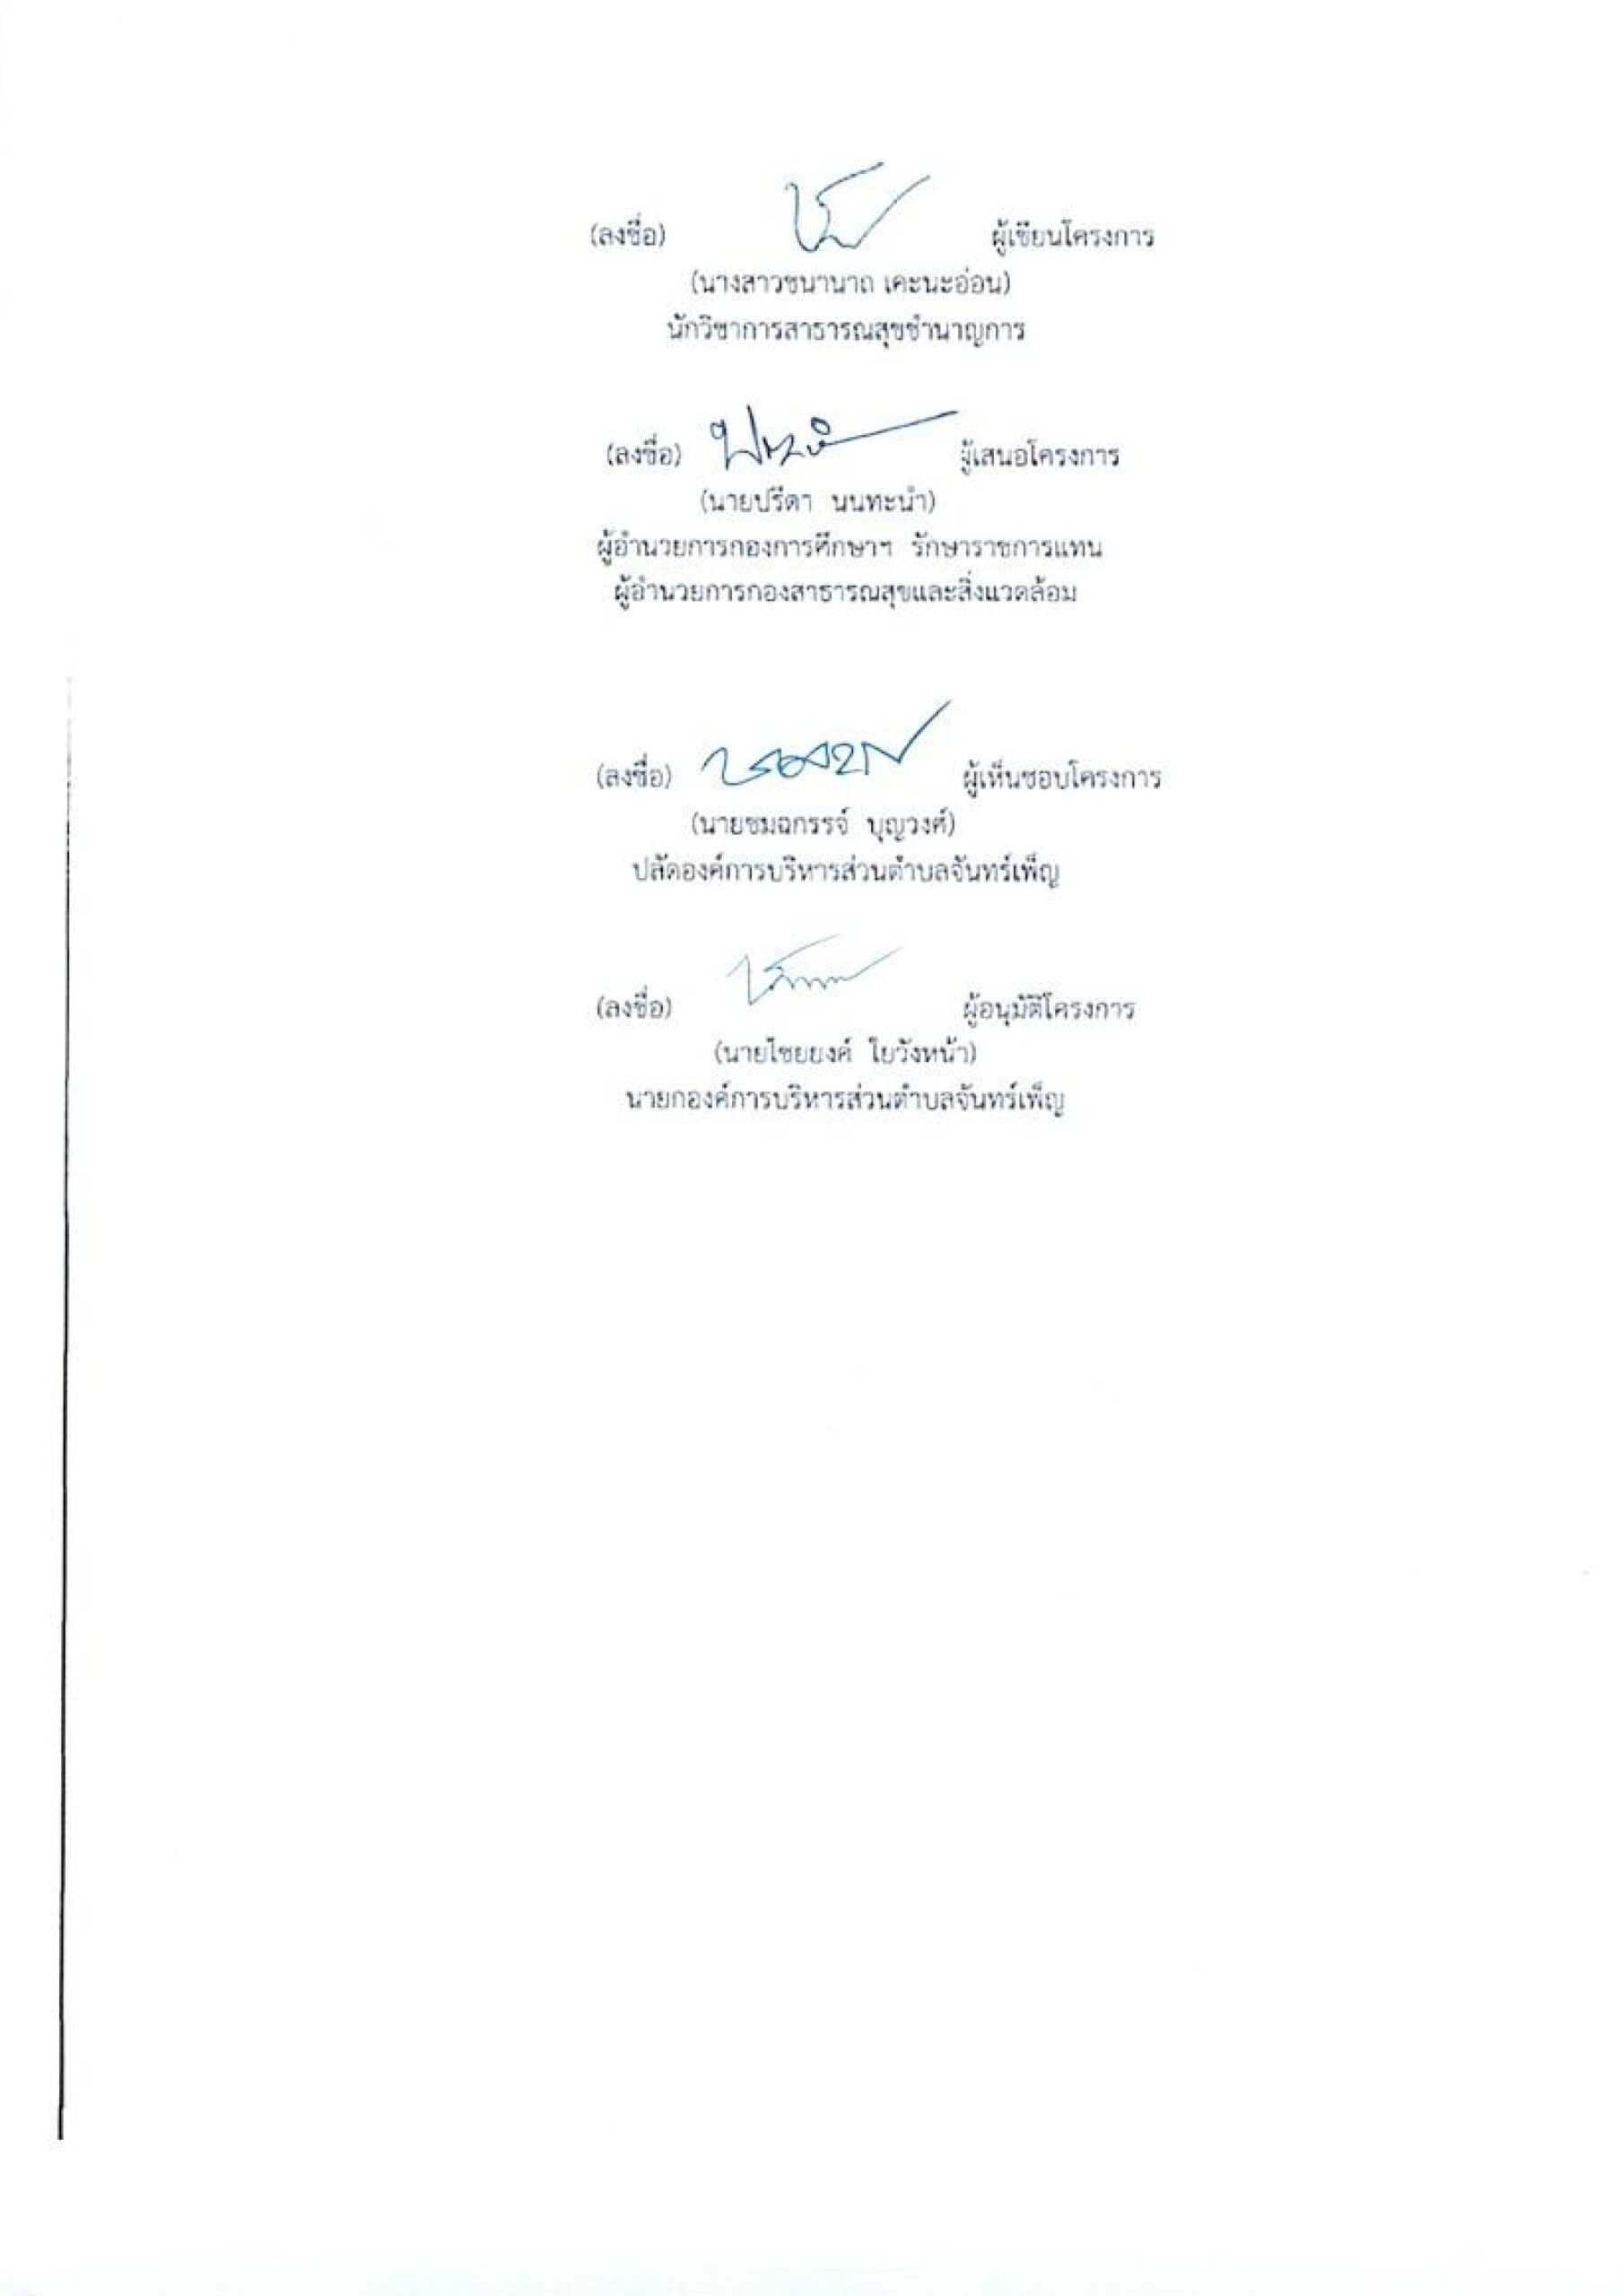 (ลงชื่อ) ผู้เขียนโครงการ
(นางสาวชนานาถ เคะนะอ่อน)
นักวิชาการสาธารณสุขชำนาญการ
(ลงชื่อ) ผู้เสนอโครงการ
(นายปรีดา นนทะนำ)
ผู้อำนวยการกองการศึกษาฯ รักษาราชการแทน
ผู้อำนวยการกองสาธารณสุขและสิ่งแวดล้อม
(ลงชื่อ) ผู้เห็นชอบโครงการ
(นายชมฉกรรจ์ บุญวงศ์)
ปลัดองค์การบริหารส่วนตำบลจันทร์เพ็ญ
(ลงชื่อ) ผู้อนุมัติโครงการ
(นายไชยยงค์ ใยวังหน้า)
นายกองค์การบริหารส่วนตำบลจันทร์เพ็ญ